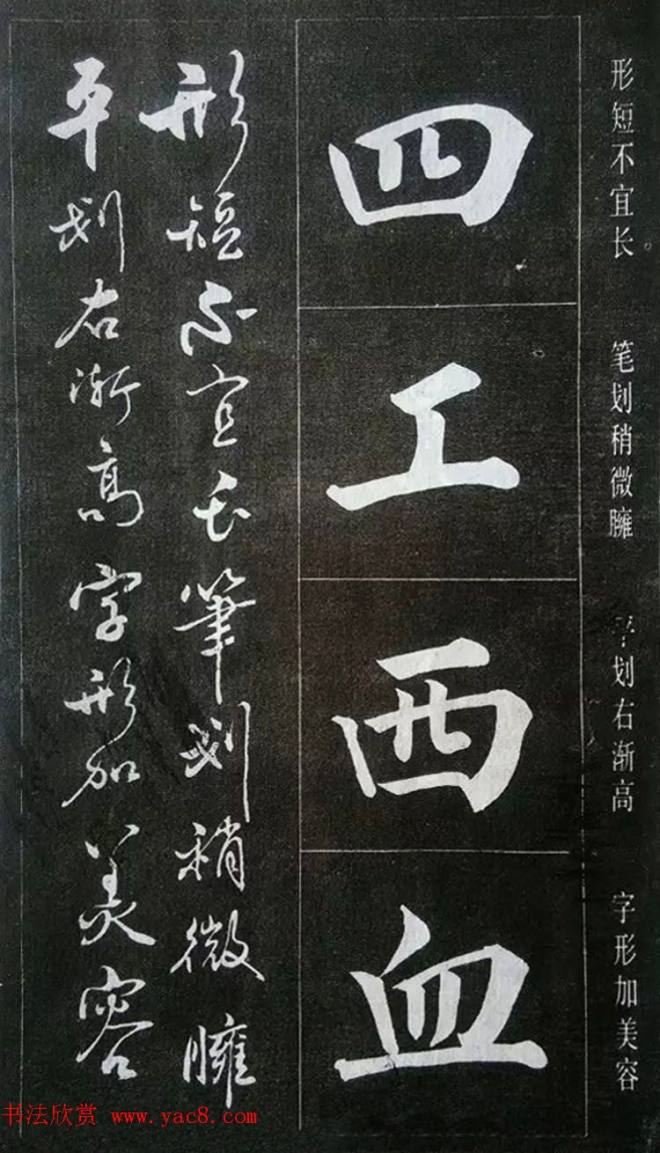 形短不宜长 笔划稍微臃 平划右渐高 字形加美容
四
工
西
血
形短不宜长筆划稍微臃
平划右渐高字形加美容
书法欣赏 www.yac8.com